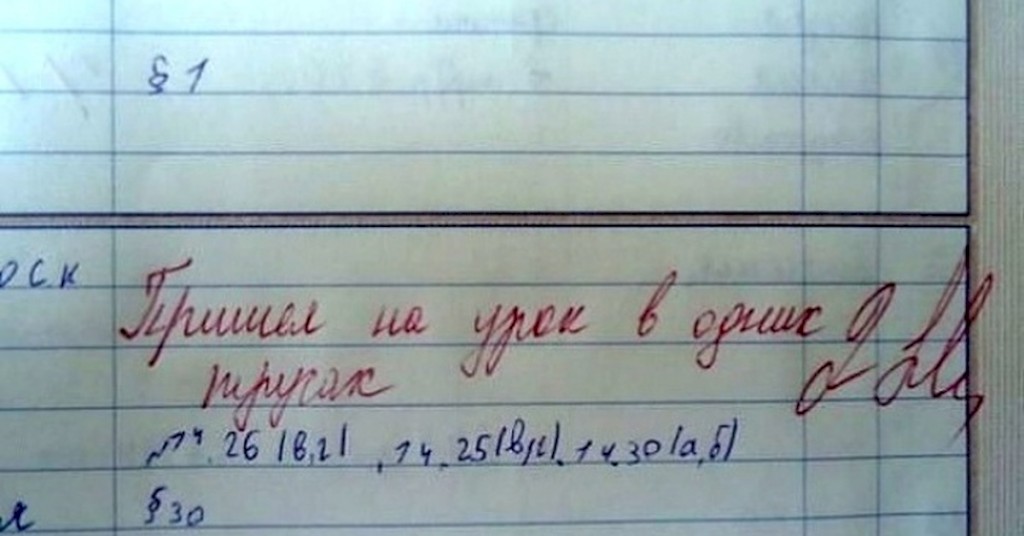 § 1
оск
Пришел на урок в одних 2
трусах
№14.26(в,г), 14.25(в,г), 14.30(а,б)
я § 30